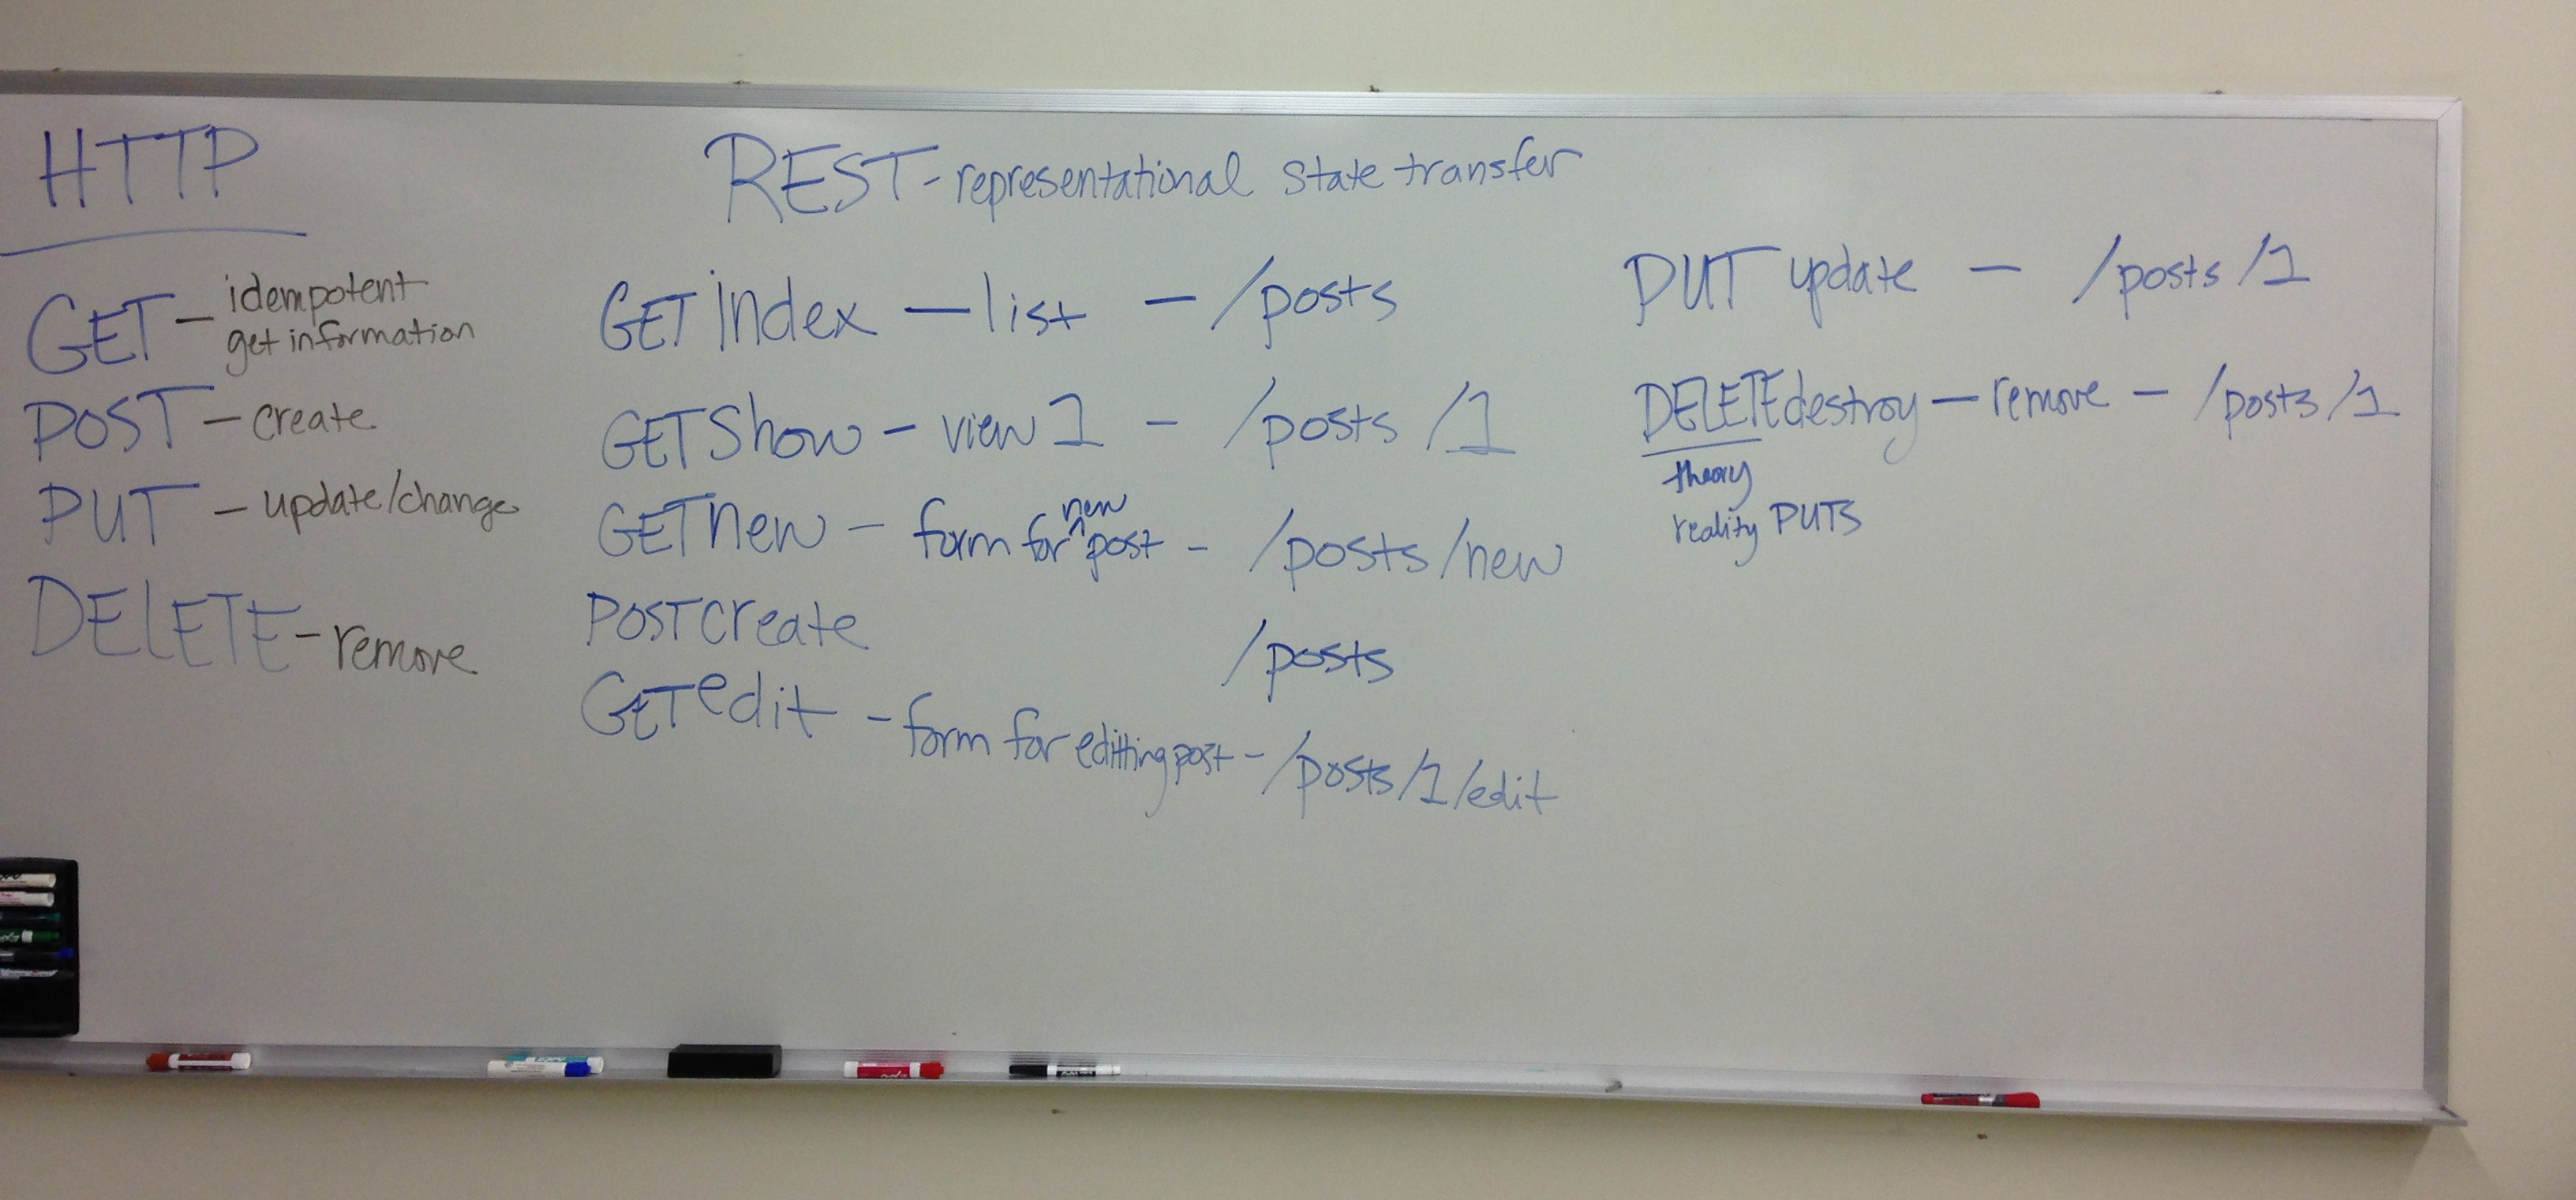 HTTP
GET - idempotent
get information
POST - create
PUT - update/change
DELETE - remove
REST - representational state transfer
GET index - list - /posts
GET Show - view 1 - /posts /1
GET new - form for new post - /posts/new
POST create /posts
GET edit - form for editting post - /posts/1/edit
PUT update - /posts /1
DELETE destroy - remove - /posts /1
theory
reality PUTS